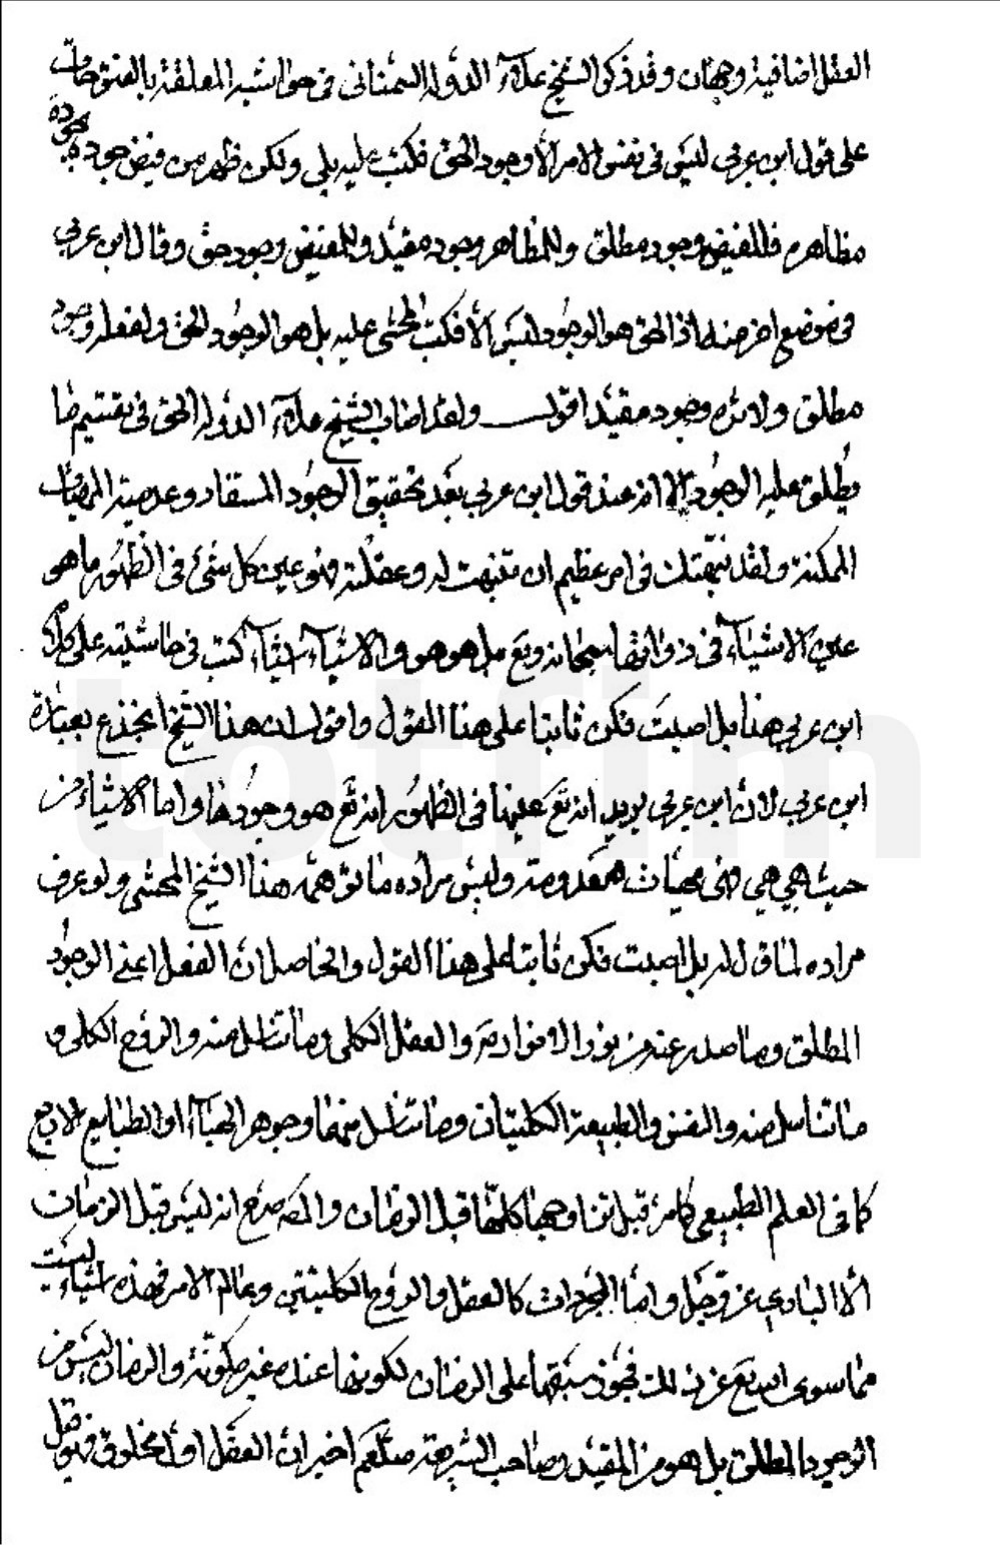 العقل اضافية وجهتان وقد ذكر الشيخ علاء الدولة السمناني في حواشيه المعلقة بالفتوحات
على قول ابن عربي ليس في نفس الامر الا وجود الحق فكتب عليه بلى ولكن ظهر من فيض جوده بجوده
مظاهره فللفيض وجود مطلق وللمظاهر وجود مقيد وللمفيض وجود حق وقال ابن عربي
في موضع اخر منه اذ الحق هو الوجود ليس الا فكتب المحشى عليه بل هو الوجود الحق ولفعله وجود
مطلق ولاثره وجود مقيد اقول ولقد اصاب الشيخ علاء الدولة الحق في تقسيم ما
يطلق عليه الوجود الا انه عند قول ابن عربي بعد تحقيق الوجود المستفاد وعدمية المهيات
الممكنة ولقد نبهتك في امر عظيم ان تنبهت له وعقلته فهو عين كل شئ في الظهور ما هو
عين الاشياء في ذواتها سبحانه وتع بل هو هو والاشياء اشياء كتب في حاشيته على كلام
ابن عربي هذا بل اصبت فكن ثابتا على هذا القول واقول ان هذا الشيخ انخدع بعبارة
ابن عربي لان ابن عربي يريد انه تع عينها في الظهور انه تع هو وجودها واما الاشياء من
حيث هي هي فهى مهيات معدومة وليس مراده ما توهمه هذا الشيخ المحشى ولو عرف
مراده لما قال له بل اصبت فكن ثابتا على هذا القول والحاصل ان الفعل اعني الوجود
المطلق وما صدر عنه من نور الانوار والعقل الكلى وما تناسل منه والروح الكلى و
ما تناسل منه والنفس والطبيعة الكليتان وما تناسل منهما وجوهر الهباء او الطبايع الاربع
كما في العلم الطبيعي كما مر قبل هذا وجهها كلها قبل الزمان والمص صرح انه ليس قبل الزمان
الا البارى عز وجل واما المجردات كالعقل والروح الكليتين وعالم الامر فهذه اشياء ليست
مما سوى الله تع عز فجوز سبقها على الزمان لكونها عنده غير مكونة والزمان ليس من
الوجود المطلق بل هو من المقيد وصاحب الشريعة صلعم اخبر ان العقل اول مخلوق فهو قبل